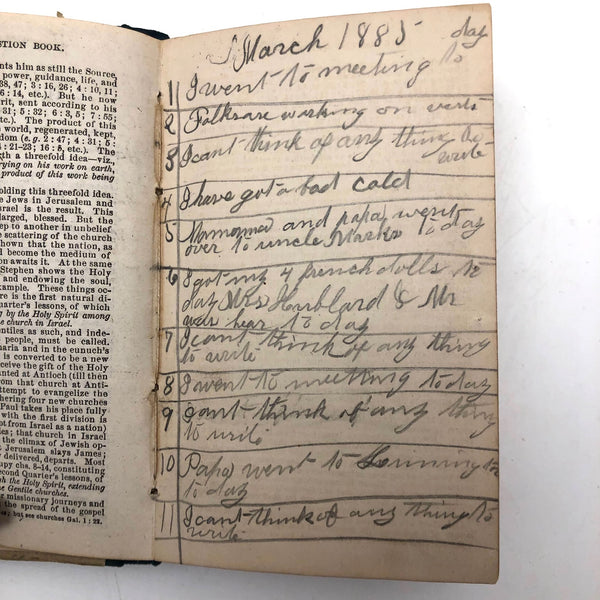 STION BOOK.
nts him as still the Source,
power, guidance, life, and
38, 47; 3:16, 26; 4:10, 11;
etc.). But he now
rit, sent according to his
31; 5:32; 6:3, 5; 7:55;
etc.). The product of this
world, regenerated, kept,
dom (e.g. 2:47; 4:31; 5:
:21-23; 16:5, etc.). We
gth a threefold idea—viz.,
rying on his work on earth,
product of this work being
olding this threefold idea.
e Jews in Jerusalem and
rael is the result. This
larged, blessed. But the
ep to another in unbelief
e scattering of the church
hown that the nation, as
d become the medium of
on awaits it. At the same
Stephen shows the Holy
and endowing the soul,
xample. These things oc-
re is the first natural di-
uarter's lessons, of which
g by the Holy Spirit among
e church in Israel.
ntiles as such, and inde-
s people, must be called.
maria and in the eunuch's
is converted to be a new
ceive the gift of the Holy
unted at Antioch (till then
rom that church at Anti-
ttempt to evangelize the
thering four new churches
Paul takes his place fully
with the first division is
ept from Israel as a nation)
ctors; that church in Israel
the climax of Jewish op-
Jerusalem slays James;
delivered, departs. Most
upy chs. 8-14, constituting
econd Quarter's lessons, of
h the Holy Spirit, extending
e Gentile churches.
missionary journeys and
the spread of the gospel
s; but see churches Gal. 1:22.
March 1885
1 I went to meeting to day
2 Folks are working on verts
3 I cant think of any thing to
write
4 I have got a bad cold
5 Mamama and papa went
over to uncle Marks to day
6 I got my 4 french dolls to
day Mrs Hubbard & Mr
was hear to day
7 I cant think of any thing
to write
8 I went to meeting to day
9 I cant think of any thing
to write
10 Papa went to
to day
11 I cant think of any thing to
write